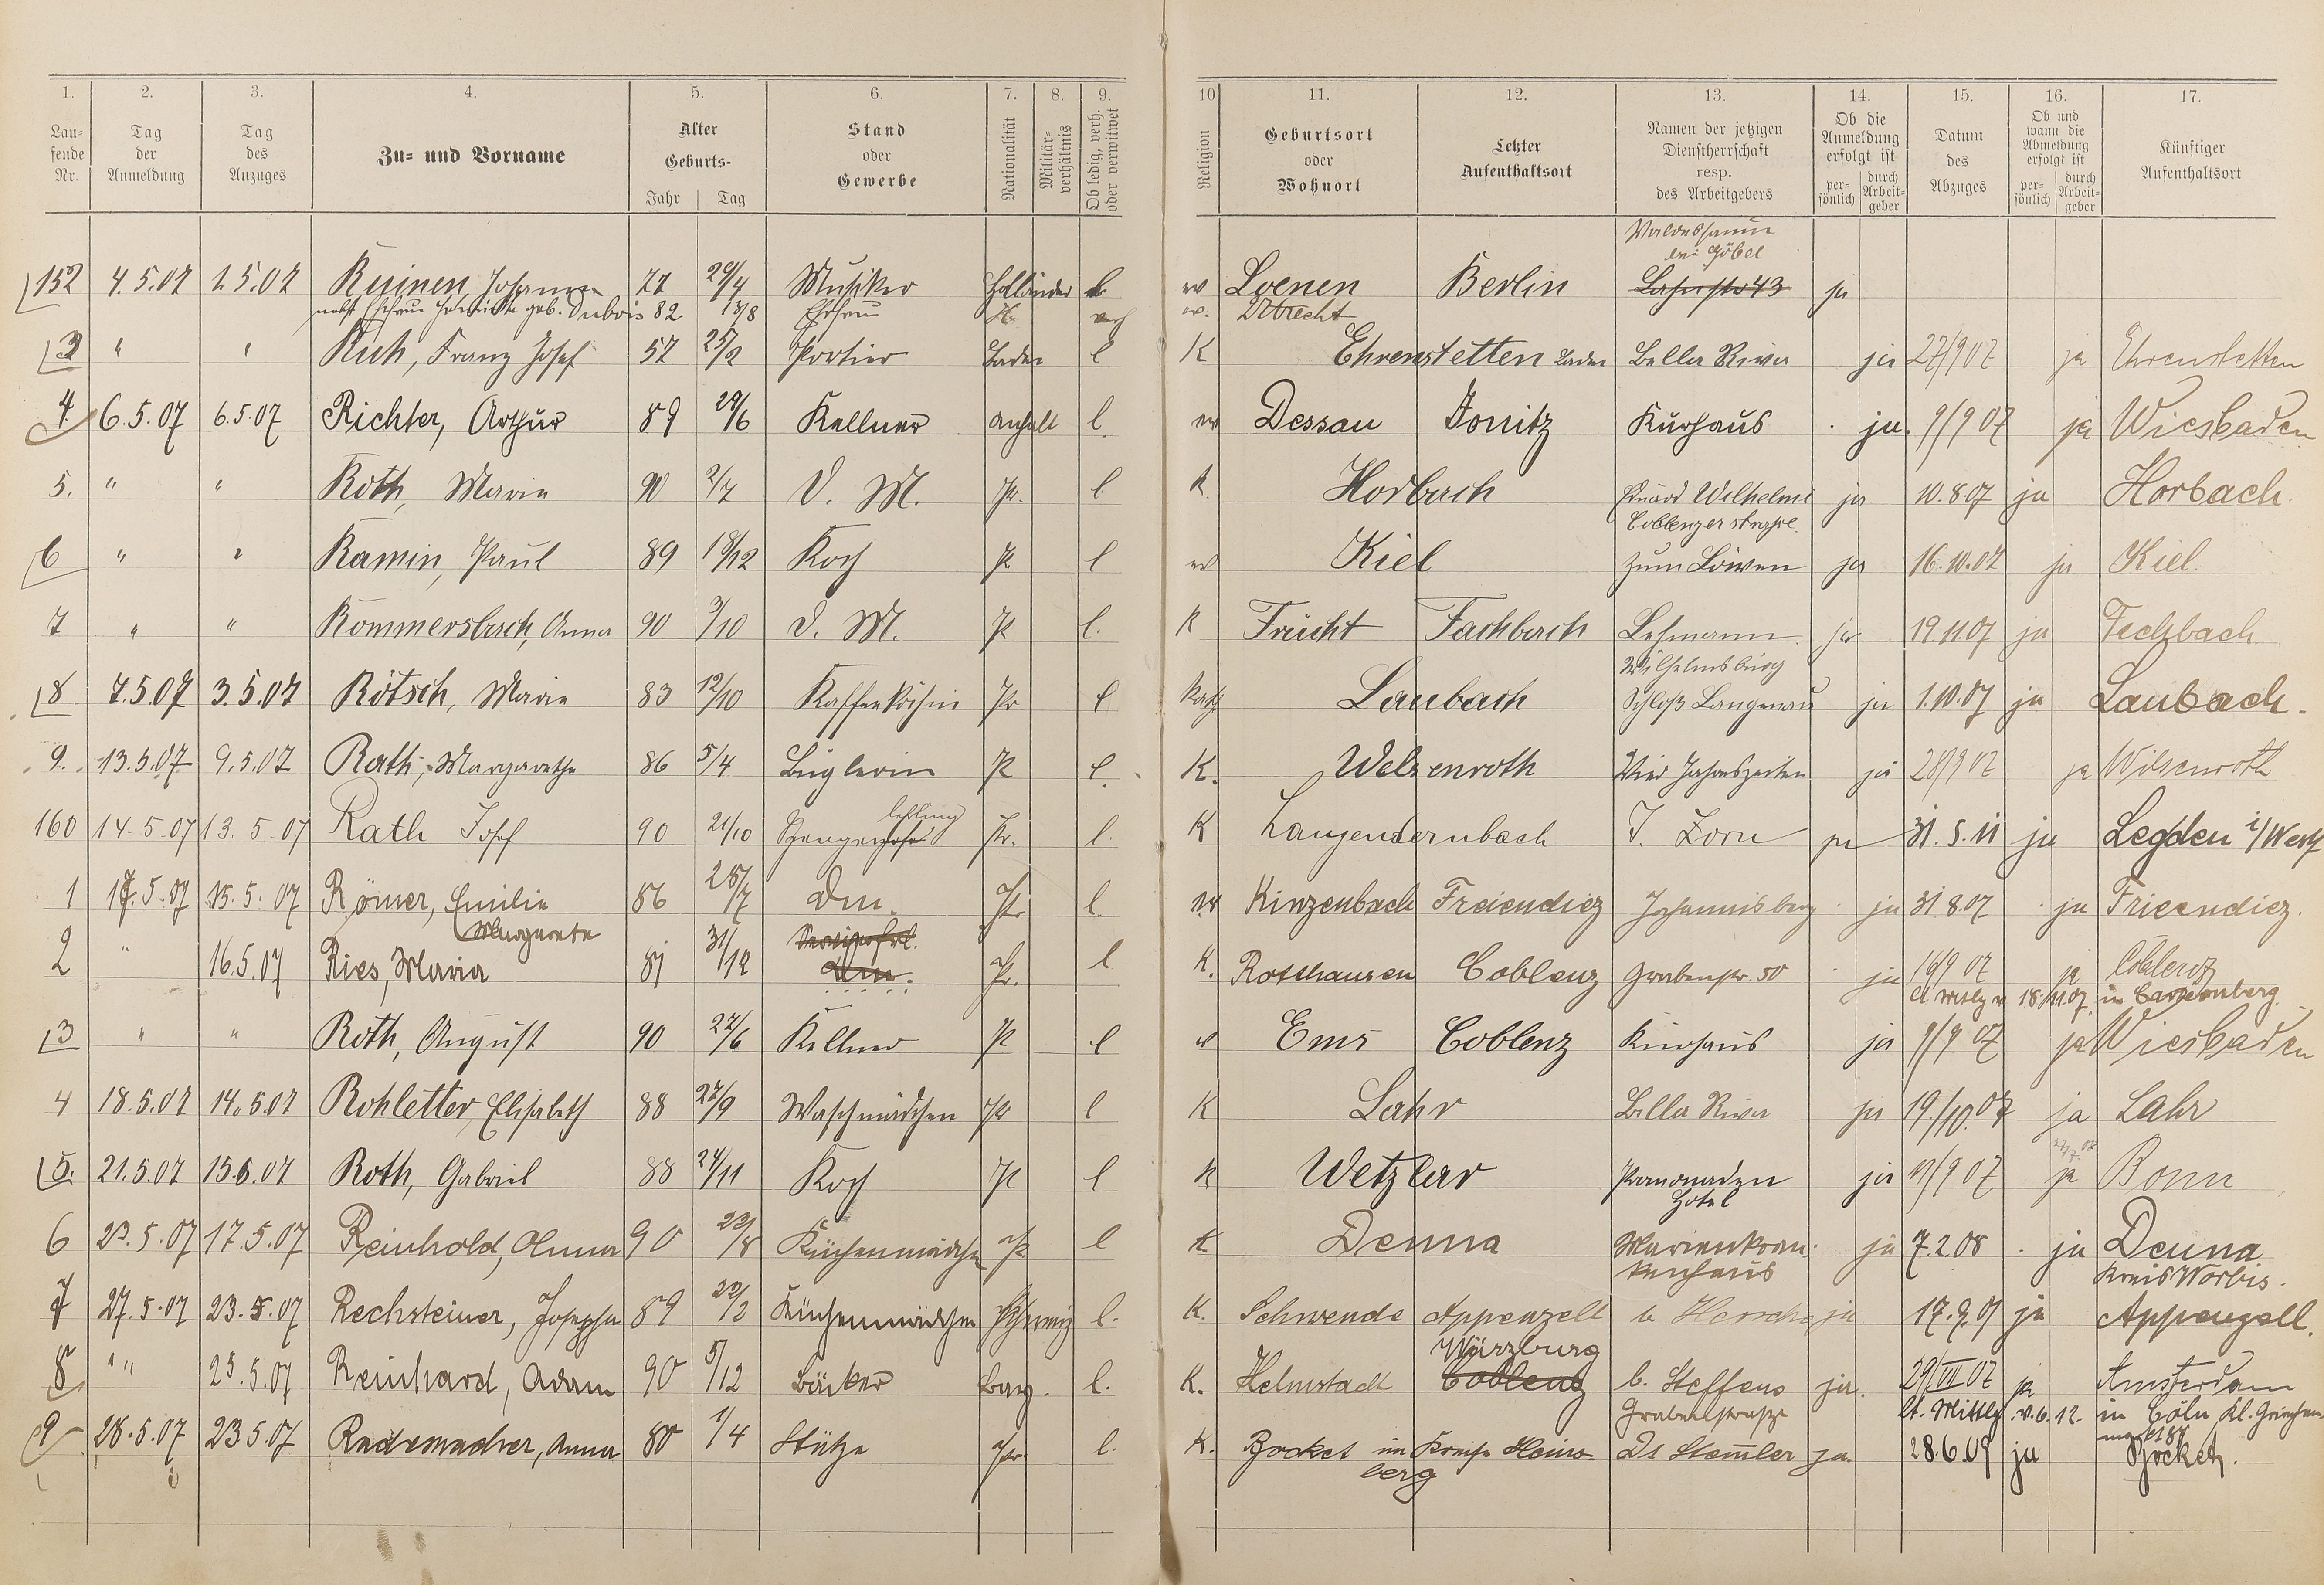 1. 2. 3. 4. 5. 6. 7. 8. 9. 10 11. 12. 13. 14. 15. 16. 17.
Lau-
fende
Nr.
Tag
der
Anmeldung
Tag
des
Anzuges
Zu- und Vorname
Alter
Geburts-
Jahr Tag
Stand
oder
Gewerbe
Nationalität
Militär-
verhältnis
Ob ledig, verh.
oder verwitwet
Religion
Geburtsort
oder
Wohnort
Letzter
Aufenthaltsort
Namen der jetzigen
Dienstherrschaft
resp.
des Arbeitgebers
Ob die
Anmeldung
erfolgt ist
per-
sönlich
durch
Arbeit-
geber
Datum
des
Abzuges
Ob und
wann die
Abmeldung
erfolgt ist
per-
sönlich
durch
Arbeit-
geber
Künftiger
Aufenthaltsort
bei Göbel
152 4.5.07 1.5.07 Johannes 77 29/4 Musiker Holländer w Loenen Berlin Lahnstr 43 ja
nebst Ehefrau geb. Dubois 82 18/8 Ehefrau w. Utrecht
3 " " Ruh, Franz Josef 57 25/2 Portier Baden l K Ehrenstetten Baden Bella Riva ja 27/9 07 ja Ehrenstetten
4 6.5.07 6.5.07 Richter, Arthur 89 29/6 Kellner Anhalt l. Dessau Jonitz Kurhaus ja. 9/9 07 ja Wiesbaden
5. " " Roth, Maria 90 2/7 D. M. Pr. l K. Horbach Wilhelmi ja 10.8.07 ja Horbach
Coblenzer strasse.
6 " " Ramin, Paul 89 18/12 Koch Pr l Kiel zum Löwen ja 16.10.07 ja Kiel.
7 " " Rommersbach, Anna 90 3/10 D. M. Pr l. K Frücht Fachbach Lehmann ja 19.11.07 ja Fachbach
Wilhelmsburg
8 7.5.07 3.5.07 Rötsch, Marie 83 12/10 Kaffeeköchin Pr l Kath Laubach Schloß Langenau ja 1.10.07 ja Laubach.
9. 13.5.07 9.5.07 Rath, Margarethe 86 5/4 Büglerin Pr l. K. Welzenroth Vier Jahreszeiten ja 28/9 07 ja Wilsenroth
lehrling
160 14.5.07 13.5.07 Rath Josef 90 21/10 Pr. l. K Langendernbach J. Zorn ja 31.5.11 ja Legden i/Westf
1 17.5.07 15.5.07 Römer, Emilie 86 28/7 Dm. Pr l. Kinzenbach Freiendiez Johannisberg ja 31.8.07 ja Freiendiez.
Margarete
2 " 16.5.07 Ries, Maria 87 31/12 Dm. Pr. l K. Rotthausen Coblenz Grabenstr. 50 ja 16/9 07 ja Coblenz
18/11.07.
3 " " Roth, August 90 27/6 Kellner Pr l Ems Coblenz Kurhaus ja 9/9 07 ja Wiesbaden
4 18.5.07 14.5.07 Rohletter, Elisabeth 88 27/9 Waschmädchen Pr l K Lahr Bella Riva ja 19./10.07 ja Lahr
5. 21.5.07 15.5.07 Roth, Gabriel 88 24/11 Koch Pr l K Wetzlar Promenaden ja 19/9 07 ja Bonn
Hotel
6 23.5.07 17.5.07 Reinhold, Anna 90 23/8 Küchenmädchen Pr l K Deuna Marienkran- ja 7.2.08 ja Deuna
kenhaus Kreis Worbis.
7 27.5.07 23.5.07 Rechsteiner, Josepha 89 22/2 Küchenmädchen Schweiz l. K. Schwende Appenzell ja 17.9.07 ja Appenzell.
Würzburg
8 " " 25.5.07 Reinhard, Adam 90 5/12 Bäcker Bay. l. K. Helmstadt Coblenz b. Steffens ja. 29/VII 07 ja Amsterdam
Grabenstrasse lt. Mittlg. v. 6.12. in Cöln, Kl. Griechen-
markt
9 28.5.07 23.5.07 Rademacher, Anna 80 1/4 Stütze Pr l. K. Bocket im Kreise Heins- Dr Stemler ja. 28.6.09 ja Bocket.
berg